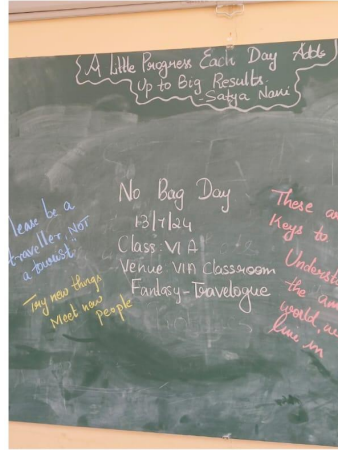 A Little Progress Each Day Adds
Up to Big Results.
- Satya Nani
No Bag Day
13/7/24
Class: VI A
Venue VIA Classroom
Fantasy-Travelogue
be a
traveller, NOT
a tourist...
Try new things
Meet new people
These
Keys to
the
world, we
live in